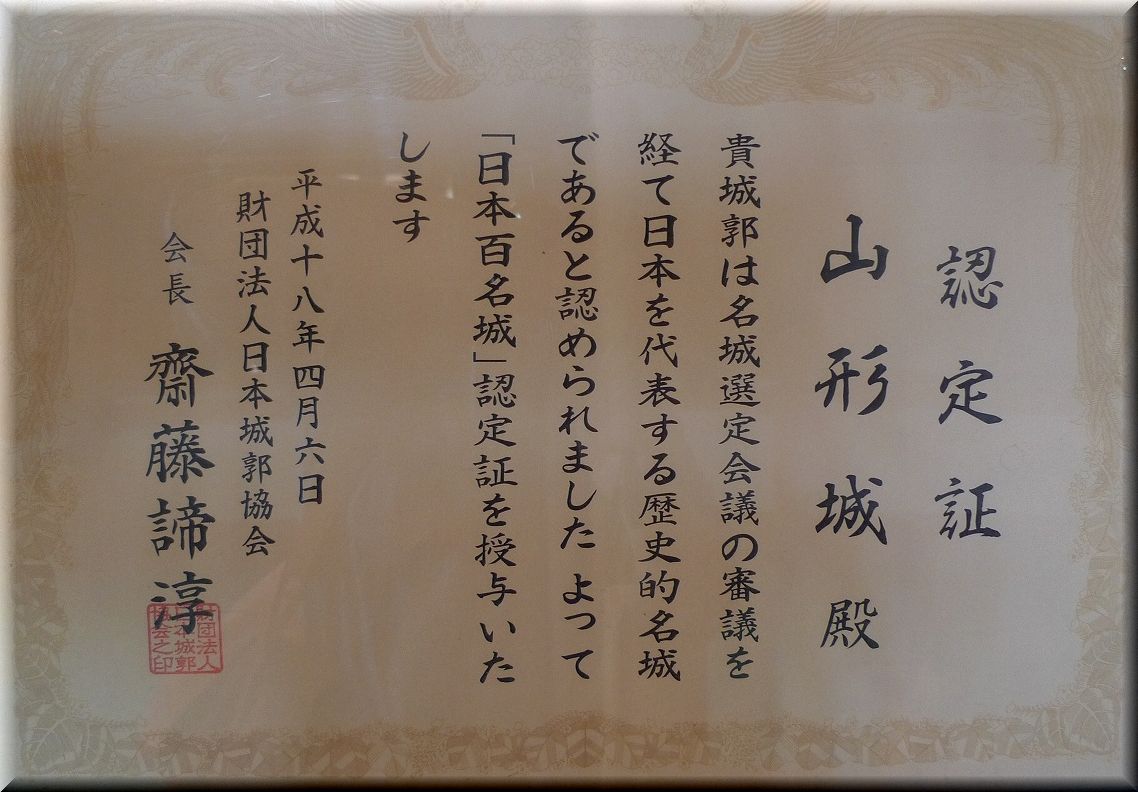 認定証
山形城殿
貴城郭は名城選定会議の審議を
経て日本を代表する歴史的名城
であると認められました よって
「日本百名城」認定証を授与いた
します
平成十八年四月六日
財団法人日本城郭協会
会長 齋藤諦淳
財団法人
日本城郭
協会之印